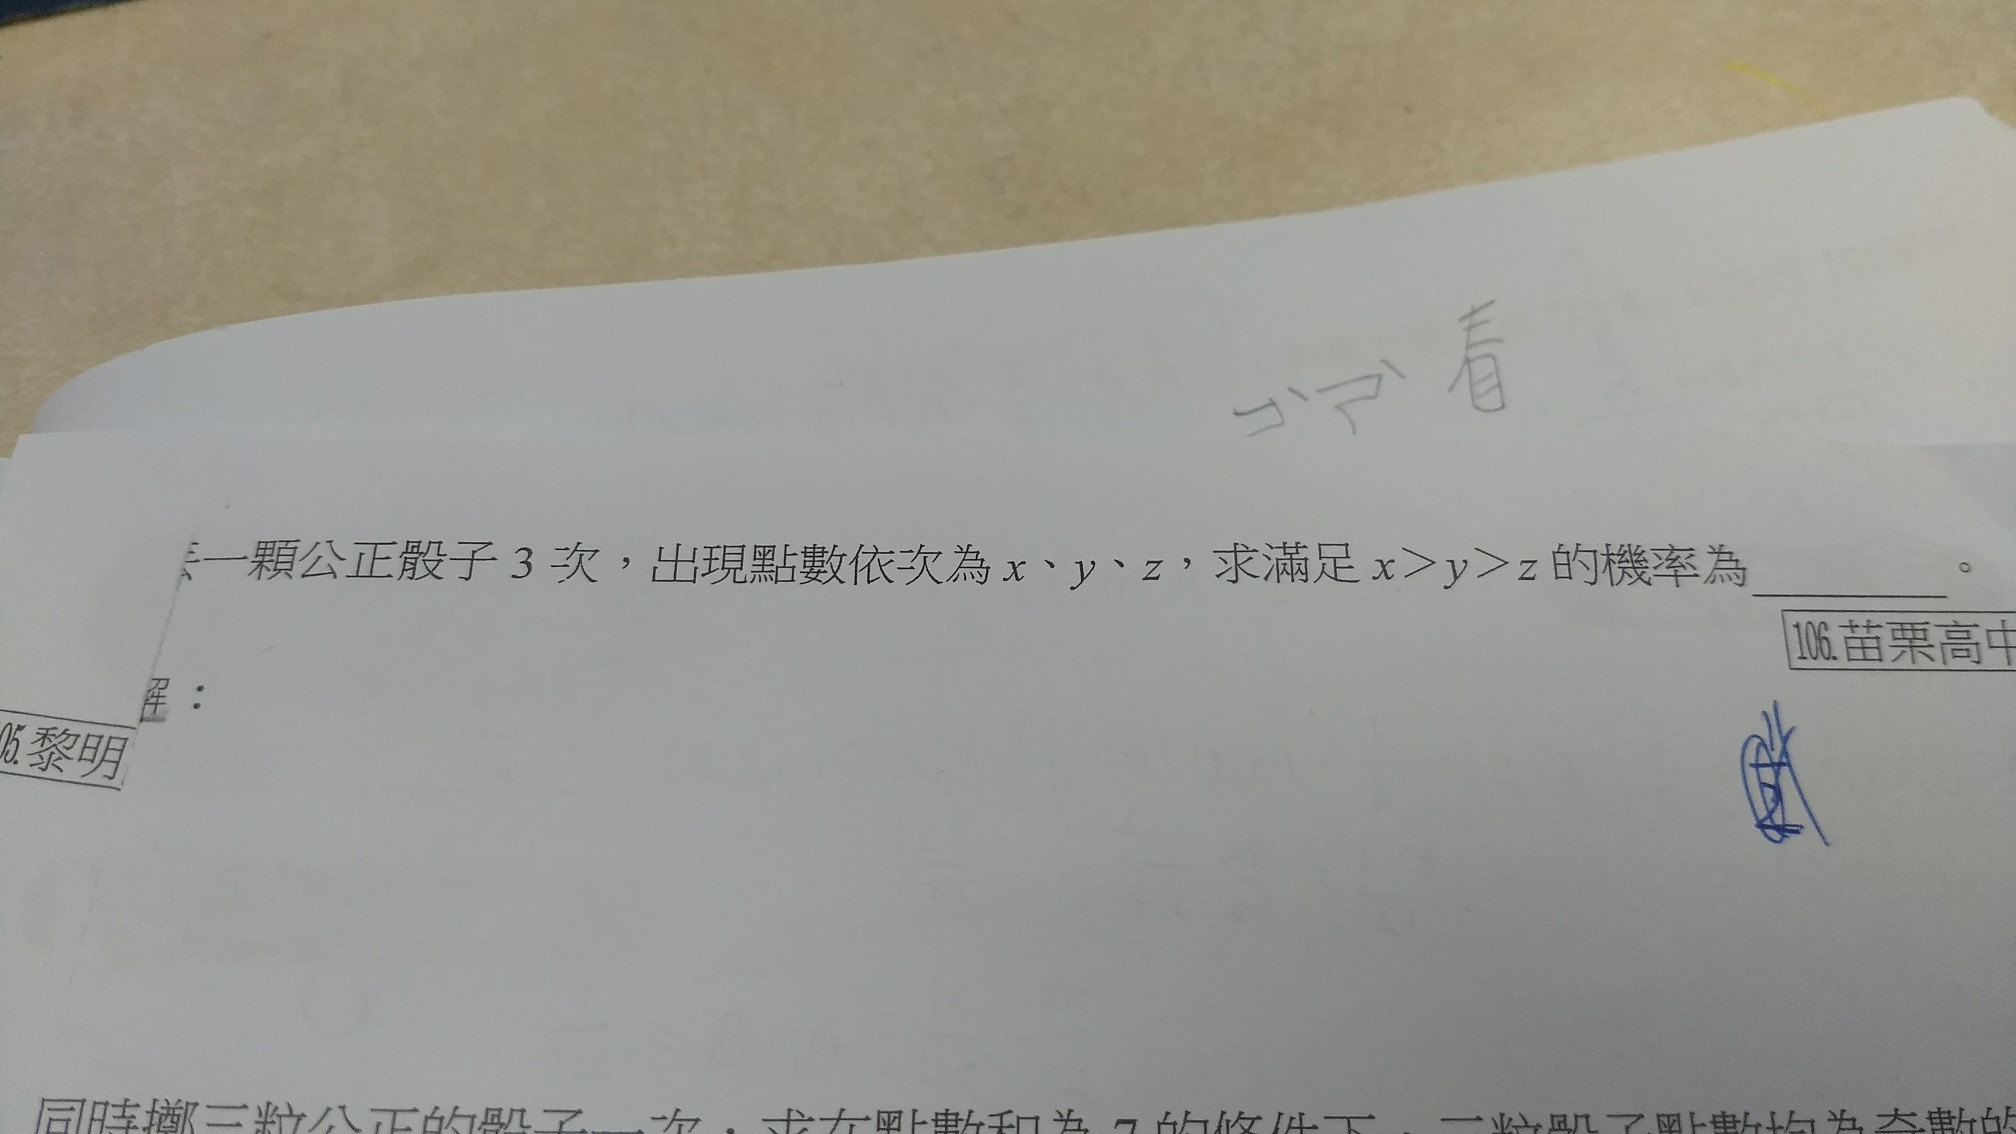 ㄅㄞˋ ㄕˋ 看
丟一顆公正骰子 3 次，出現點數依次為 x、y、z，求滿足 x＞y＞z 的機率為＿＿＿＿。
106.苗栗高中
解：
05.黎明
同時擲三粒公正的骰子一次，求在點數和為 7 的條件下，三粒骰子點數均為奇數的